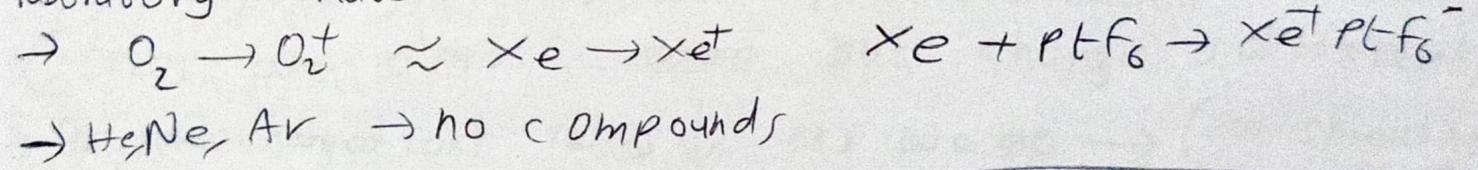 → O₂ → O₂⁺ ≈ Xe → Xe⁺ Xe + PtF₆ → Xe⁺PtF₆⁻
→ He, Ne, Ar → no compounds